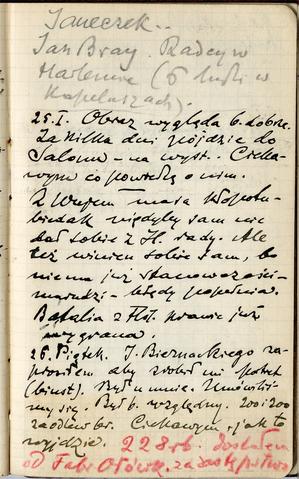 Janeczek..
Jan Bray. Radcy w
Harlemie (6 ludzi w
Kapeluszach).
25.I. Obraz wygląda b. dobrze.
Za kilka dni pójdzie do
Salonu – na wyst. Cieka-
wym co powiedzą o nim.
Z mają kłopotu-
biedak nigdyby sam nie
dał sobie z H. rady. Ale
też winien sobie sam, bo
niema już stanowczości-
marudzi - błędy popełnia.
Batalia z Hol. prawie już
wygrana.
26. Piątek. J. Biernackiego za-
prosiłem aby zrobił mi portret
(biust). Był u mnie. Umówiliś-
my się. Był b. względny. 200:200
za odlew br. Ciekawym jak to
wyjdzie. 228 rb. dostałem
od Fabr. Ołówk. za zastępstwo